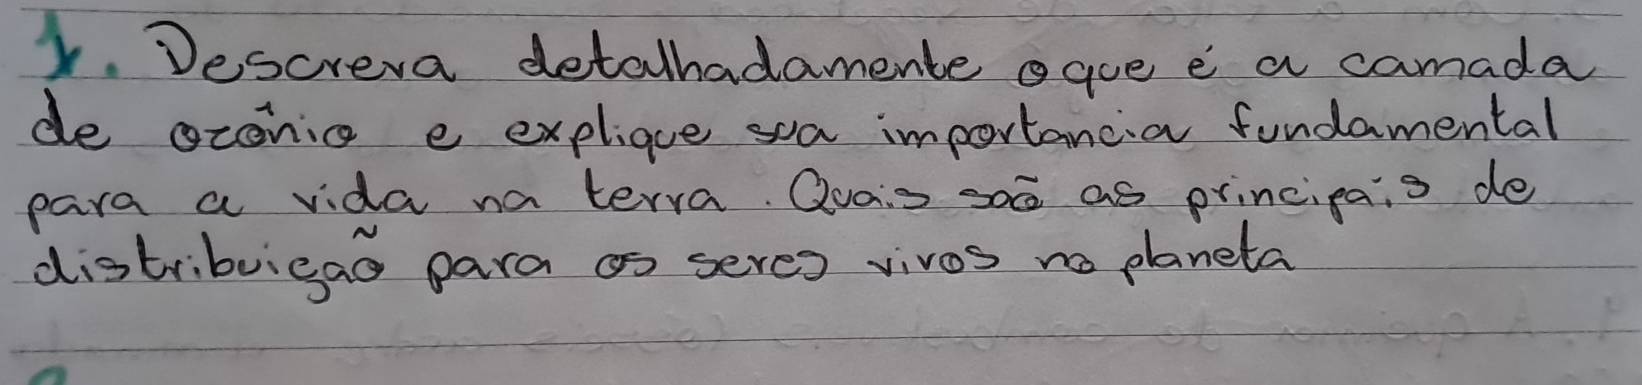 1. Descreva detalhadamente o que é a camada
de ozônio e explique sua importancia fundamental
para a vida na terra. Quais saõ as principais de
distribuição para os seres vivos no planeta